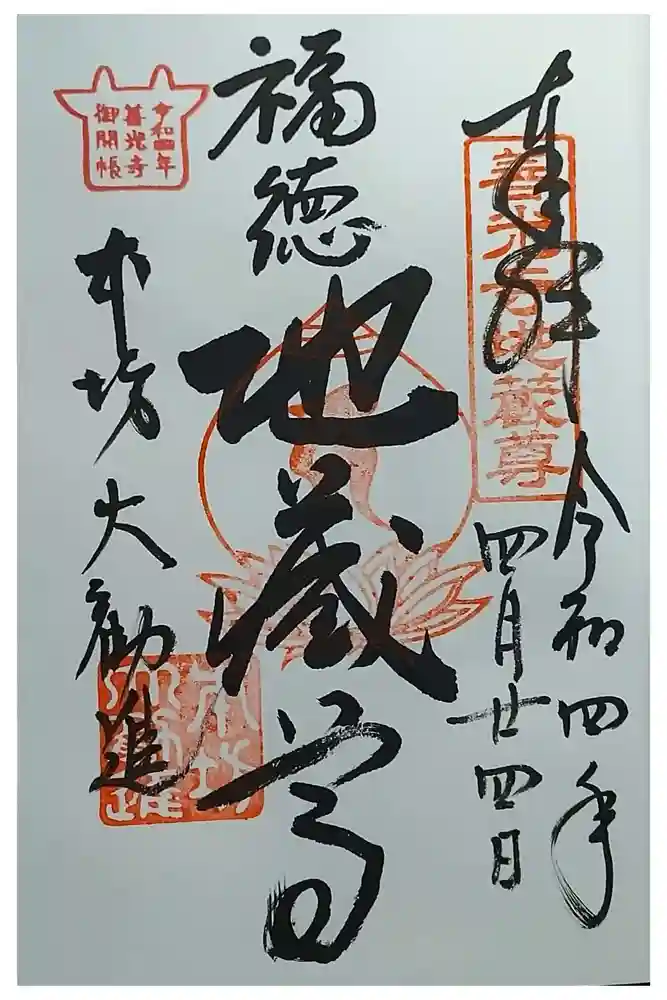 奉拝
令和四年
四月廿四日
善光寺地蔵尊
福徳
地蔵尊
令和四年
善光寺
御開帳
本坊 大勧進
本坊
大勧進